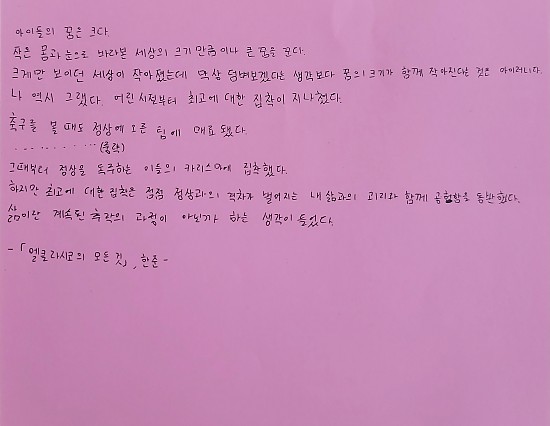 아이들의 꿈은 크다.
작은 몸과 눈으로 바라본 세상의 크기 만큼이나 큰 꿈을 꾼다.
크게만 보이던 세상이 작아졌는데 막상 덤벼보겠다는 생각보다 꿈의 크기가 함께 작아진다는 것은 아이러니다.
나 역시 그랬다. 어린시절부터 최고에 대한 집착이 지나쳤다.
축구를 볼 때도 정상에 오른 팀에 매료됐다.
. . . . . . . . . . (중략)
그때부터 정상을 독주하는 이들의 카리스마에 집착했다.
하지만 최고에 대한 집착은 점점 정상과의 격차가 벌어지는 내 삶과의 괴리와 함께 공허함을 동반했다.
삶이란 계속된 추락의 과정이 아닌가 하는 생각이 들었다.
-「엘클라시코의 모든 것」, 한준 -